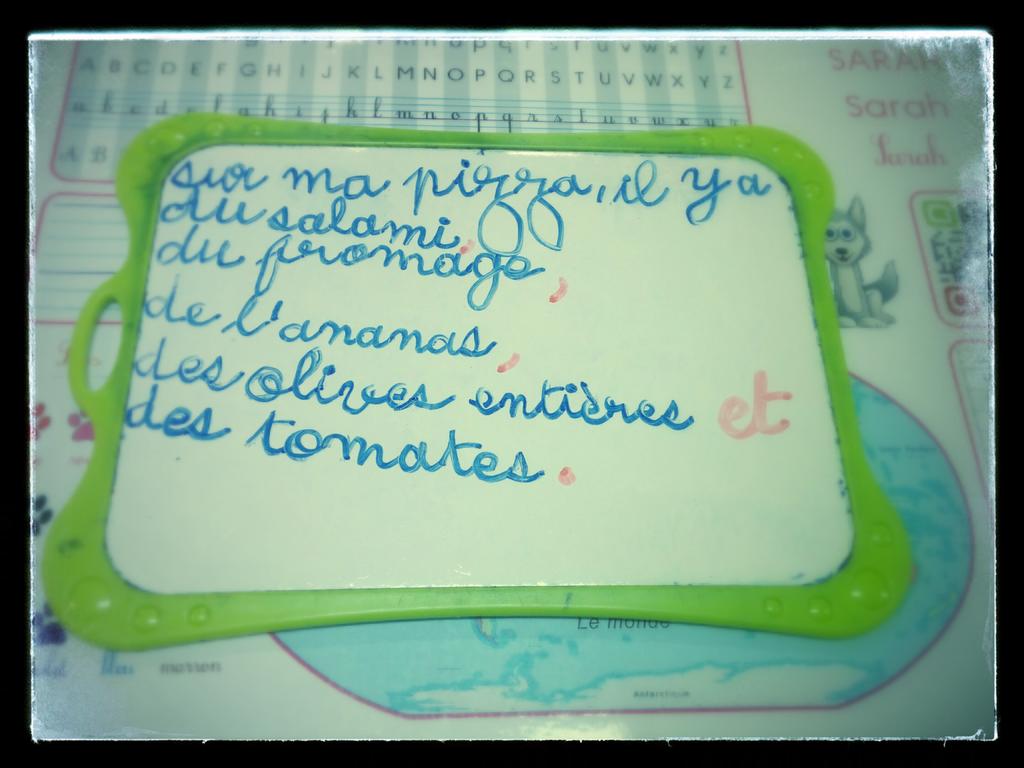 m n o p q r s t u v w x y z
A B C D E F G H I J K L M N O P Q R S T U V W X Y Z
SARAH
Sarah
Sarah
a b c d e f g h i j k l m n o p q r s t u v w x y z
A B
sur ma pizza, il y a
du salami,
du fromage,
de l'ananas,
des olives entières et
des tomates.
Le monde
Antarctique
bleu marron